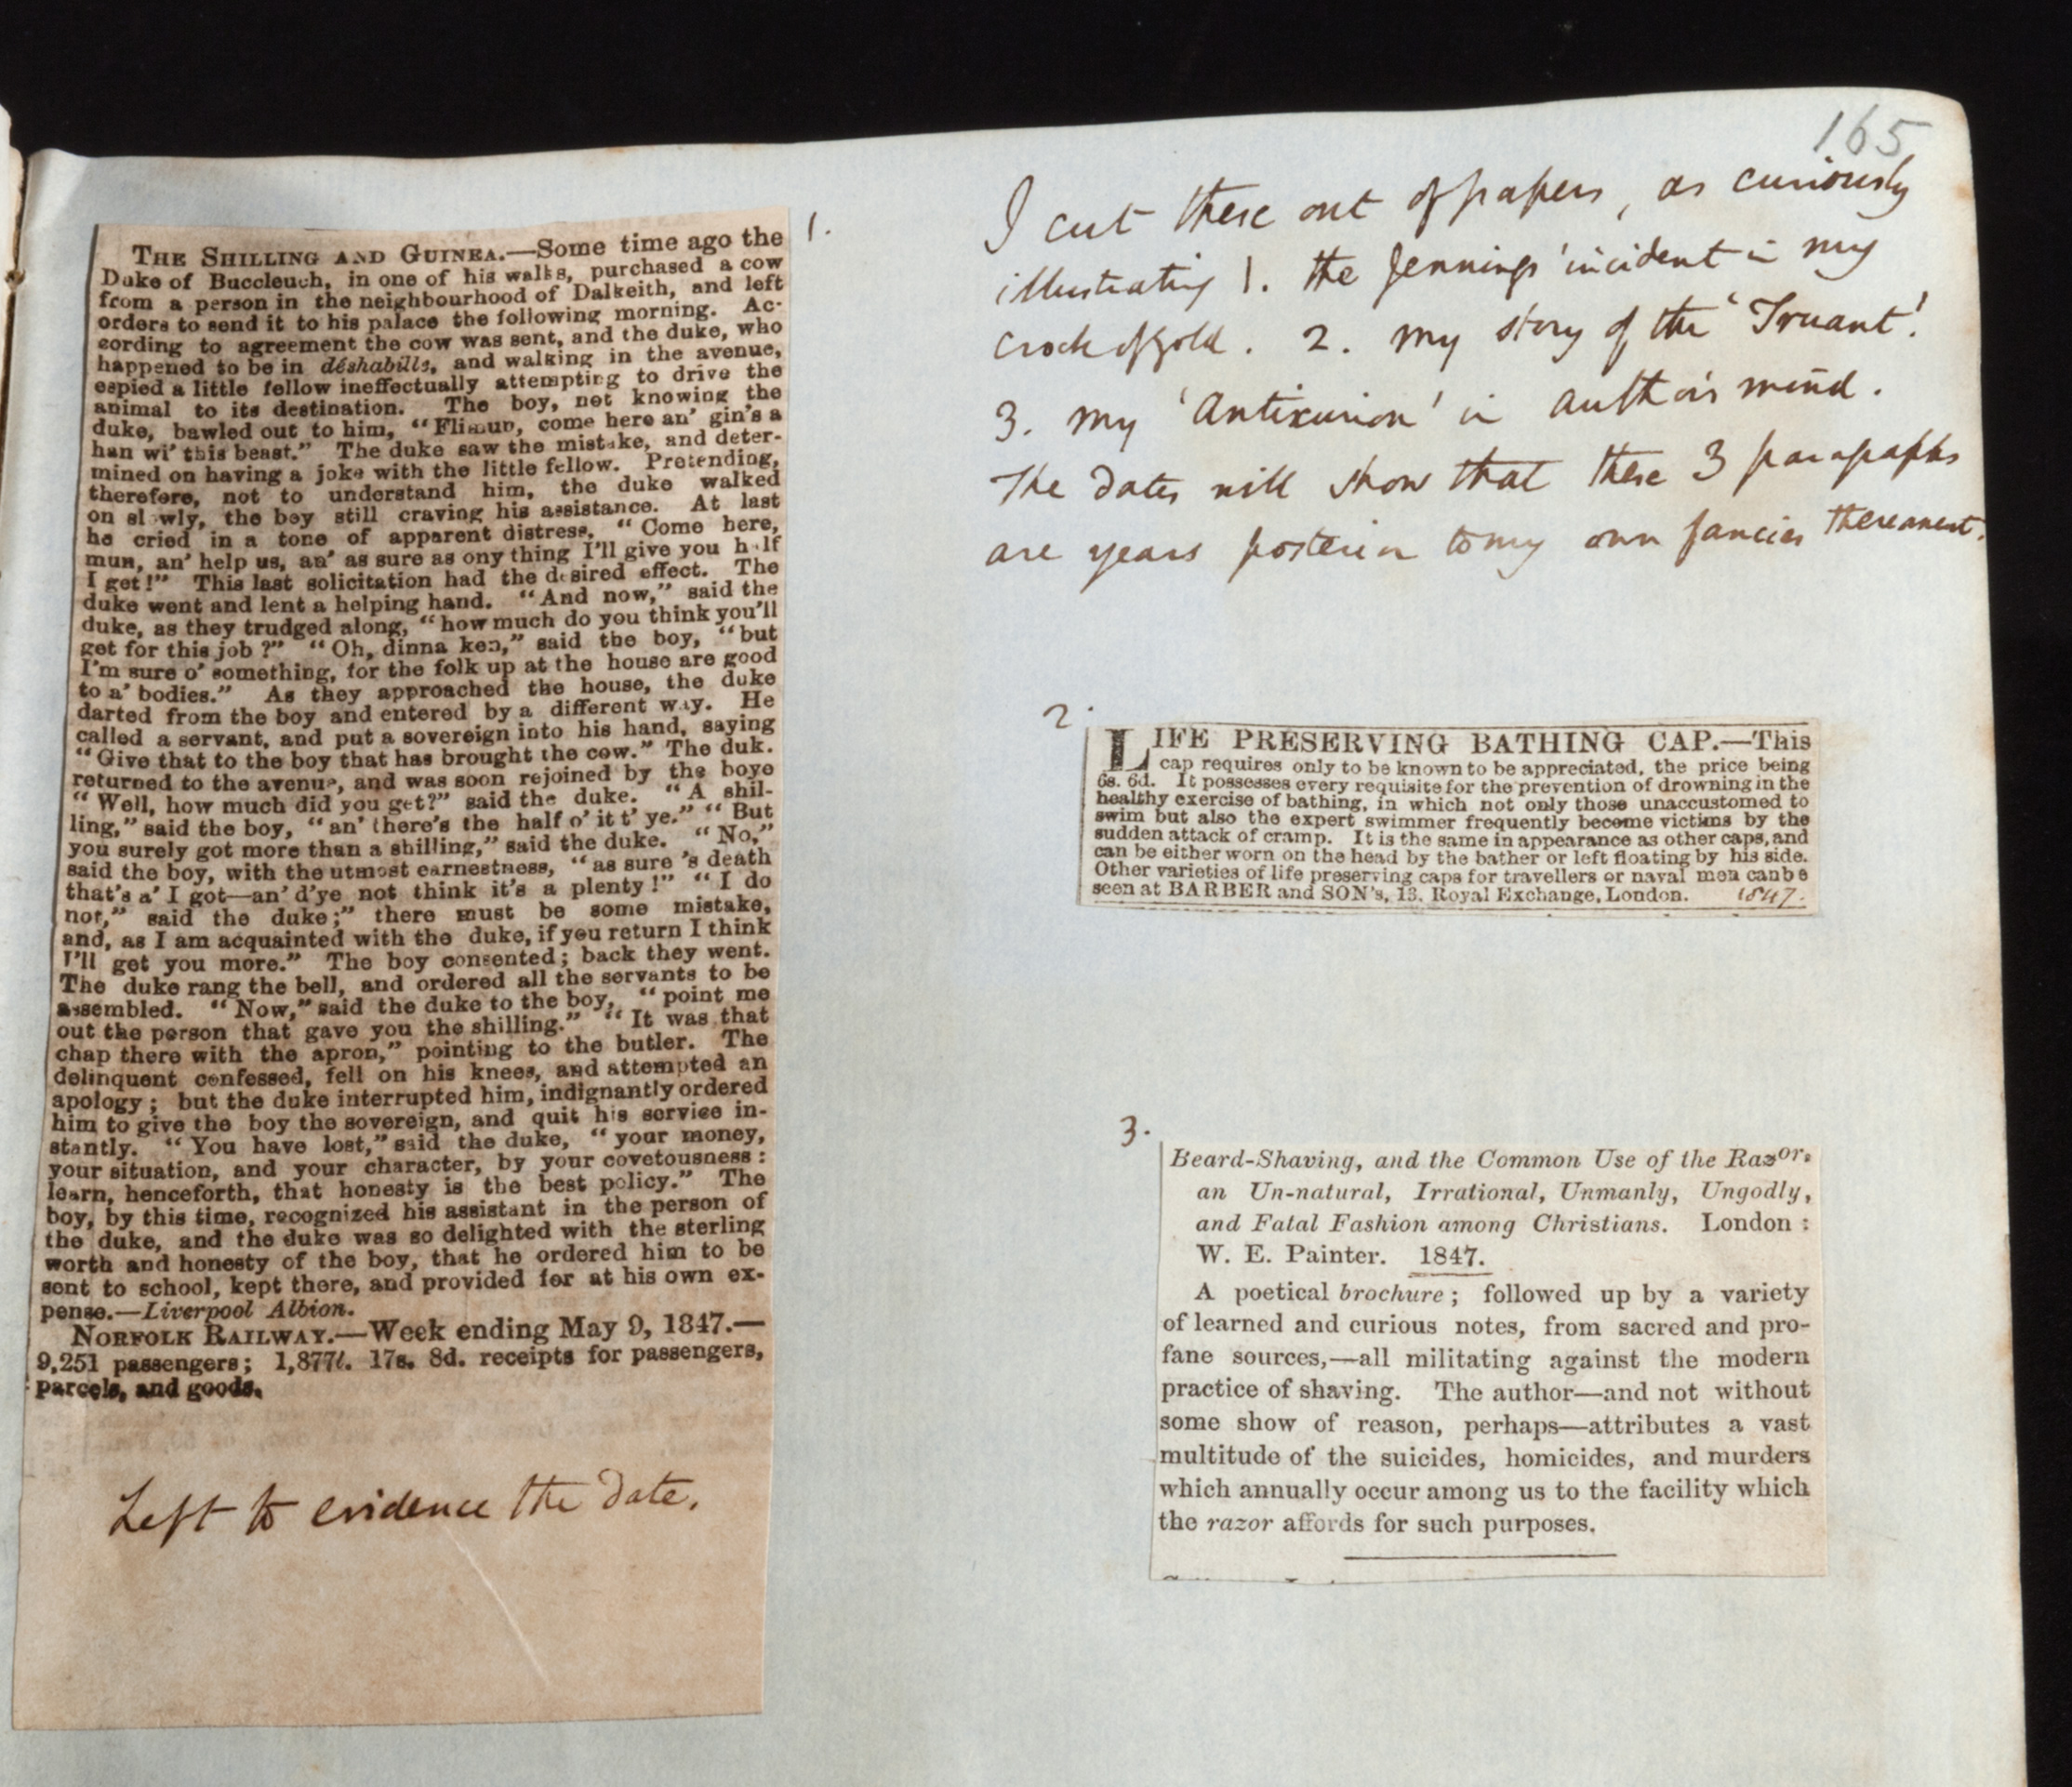 165
I cut these out of papers, as curiously
illustrating 1. the Jennings' incident in my
Crock of gold. 2. my story of the 'Truant'.
3. my 'Antixurion' in Author's mind.
The dates will show that these 3 paragraphs
are years posterior to my own fancies thereanent.
1.
THE SHILLING AND GUINEA.—Some time ago the
Duke of Buccleuch, in one of his walks, purchased a cow
from a person in the neighbourhood of Dalkeith, and left
orders to send it to his palace the following morning. Ac-
cording to agreement the cow was sent, and the duke, who
happened to be in déshabille, and walking in the avenue,
espied a little fellow ineffectually attempting to drive the
animal to its destination. The boy, not knowing the
duke, bawled out to him, "Himun, come here an' gin's a
han wi' this beast." The duke saw the mistake, and deter-
mined on having a joke with the little fellow. Pretending,
therefore, not to understand him, the duke walked
on slowly, the boy still craving his assistance. At last
he cried in a tone of apparent distress, "Come here,
mun, an' help us, an' as sure as ony thing I'll give you half
I get!" This last solicitation had the desired effect. The
duke went and lent a helping hand. "And now," said the
duke, as they trudged along, "how much do you think you'll
get for this job?" "Oh, dinna ken," said the boy, "but
I'm sure o' something, for the folk up at the house are good
to a' bodies." As they approached the house, the duke
darted from the boy and entered by a different way. He
called a servant, and put a sovereign into his hand, saying
"Give that to the boy that has brought the cow." The duk.
returned to the avenue, and was soon rejoined by the boye
"Well, how much did you get?" said the duke. "A shil-
ling," said the boy, "an' there's the half o' it t' ye." "But
you surely got more than a shilling," said the duke. "No,"
said the boy, with the utmost earnestness, "as sure 's death
that's a' I got—an' d'ye not think it's a plenty!" "I do
not," said the duke;" there must be some mistake,
and, as I am acquainted with the duke, if you return I think
I'll get you more." The boy consented; back they went.
The duke rang the bell, and ordered all the servants to be
assembled. "Now," said the duke to the boy, "point me
out the person that gave you the shilling." "It was that
chap there with the apron," pointing to the butler. The
delinquent confessed, fell on his knees, and attempted an
apology; but the duke interrupted him, indignantly ordered
him to give the boy the sovereign, and quit his service in-
stantly. "You have lost," said the duke, "your money,
your situation, and your character, by your covetousness:
learn, henceforth, that honesty is the best policy." The
boy, by this time, recognized his assistant in the person of
the duke, and the duke was so delighted with the sterling
worth and honesty of the boy, that he ordered him to be
sent to school, kept there, and provided for at his own ex-
pense.—Liverpool Albion.
NORFOLK RAILWAY.—Week ending May 9, 1847.—
9,251 passengers; 1,877l. 17s. 8d. receipts for passengers,
parcels, and goods.
Left to evidence the date.
2.
LIFE PRESERVING BATHING CAP.—This
cap requires only to be known to be appreciated, the price being
6s. 6d. It possesses every requisite for the prevention of drowning in the
healthy exercise of bathing, in which not only those unaccustomed to
swim but also the expert swimmer frequently become victims by the
sudden attack of cramp. It is the same in appearance as other caps, and
can be either worn on the head by the bather or left floating by his side.
Other varieties of life preserving caps for travellers or naval men can be
seen at BARBER and SON's, 13, Royal Exchange, London. 1847.
3.
Beard-Shaving, and the Common Use of the Razor,
an Un-natural, Irrational, Unmanly, Ungodly,
and Fatal Fashion among Christians. London:
W. E. Painter. 1847.
A poetical brochure; followed up by a variety
of learned and curious notes, from sacred and pro-
fane sources,—all militating against the modern
practice of shaving. The author—and not without
some show of reason, perhaps—attributes a vast
multitude of the suicides, homicides, and murders
which annually occur among us to the facility which
the razor affords for such purposes.